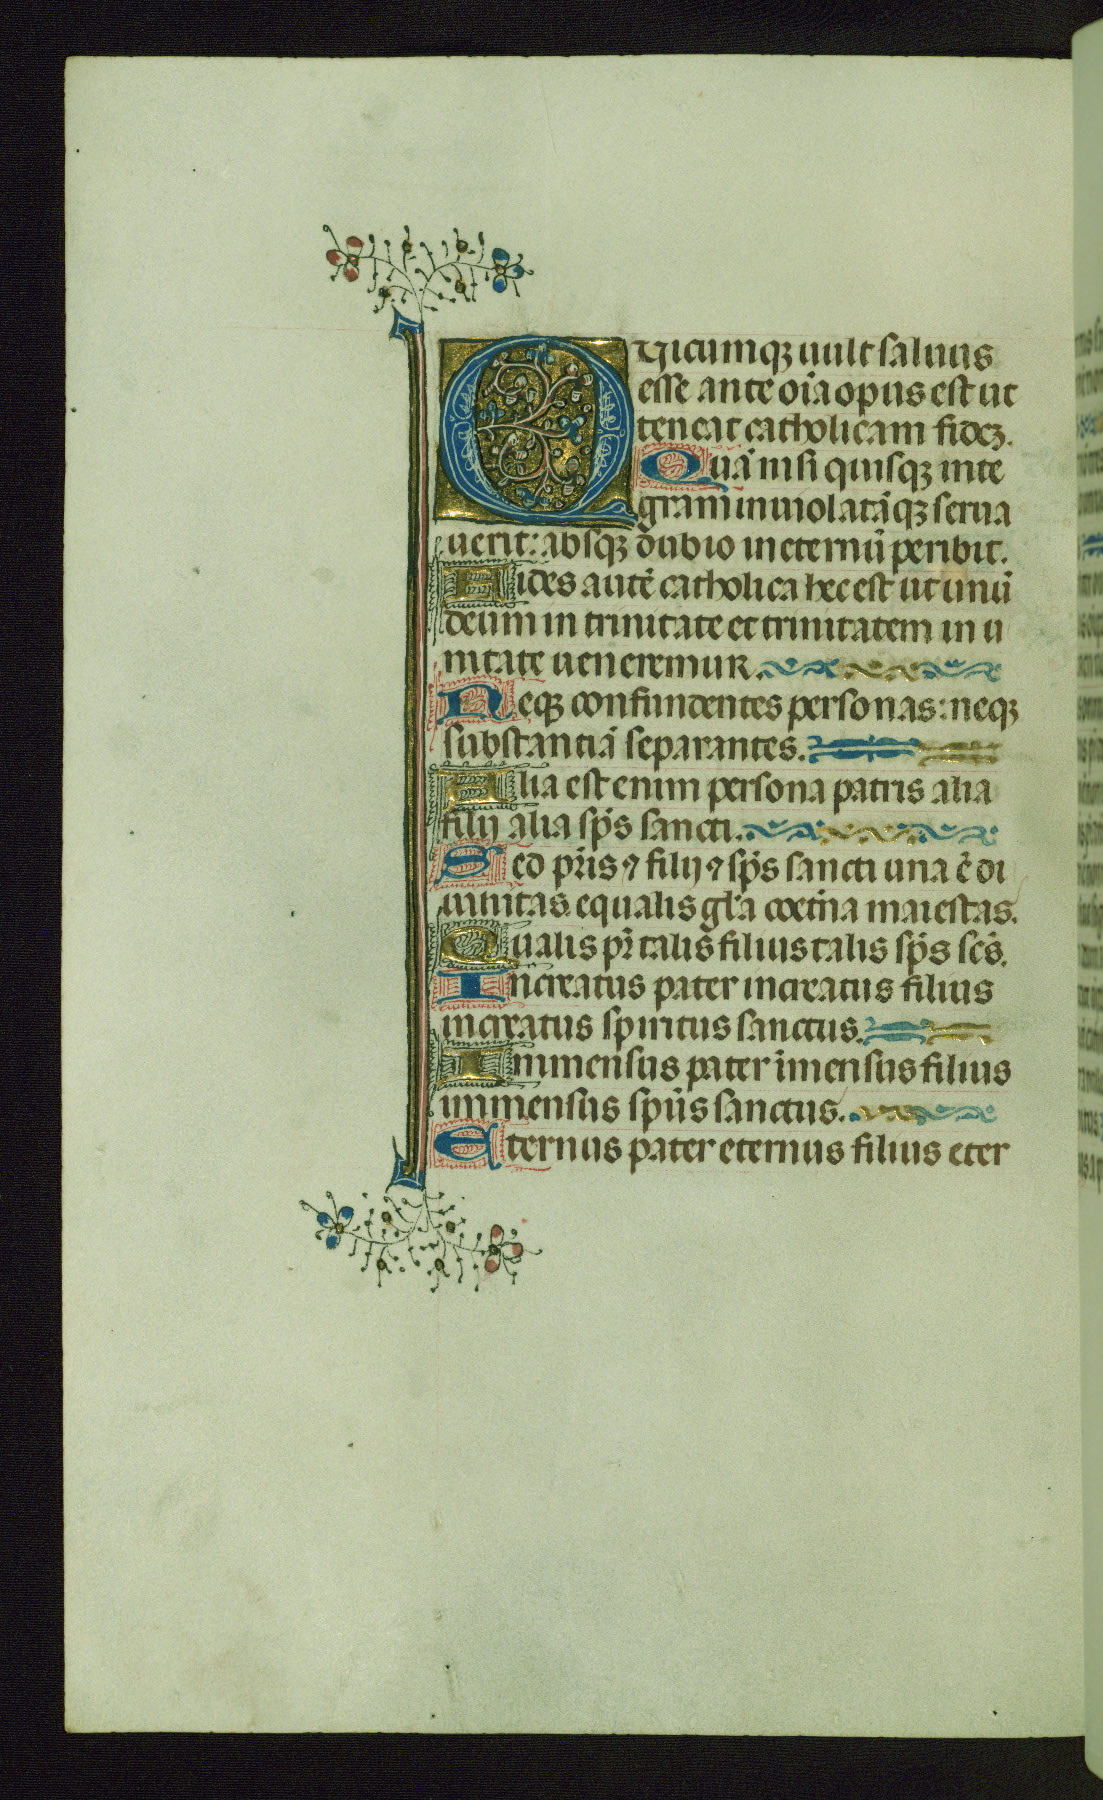 Quicumqꝫ uult saluus
esse ante oīa opus est ut
teneat catholicam fideꝫ.
Quā nisi quisqꝫ inte
gram inuiolatāqꝫ serua
uerit: absqꝫ dubio in eternū peribit.
Fides autē catholica hec est ut unū
deum in trinitate et trinitatem in u
nitate ueneremur.
Neqꝫ confundentes personas: neqꝫ
substantiā separantes.
Alia est enim persona patris alia
filij alia sp̄s sancti.
Sed pr̄is ⁊ filij ⁊ sp̄s sancti una ē di
uinitas equalis gl̄a coet̄na maiestas.
Qualis pr̄ talis filius talis sp̄s sc̄s.
Increatus pater increatus filius
increatus spiritus sanctus.
Immensus pater īmensus filius
immensus spūs sanctus.
Eternus pater eternus filius eter